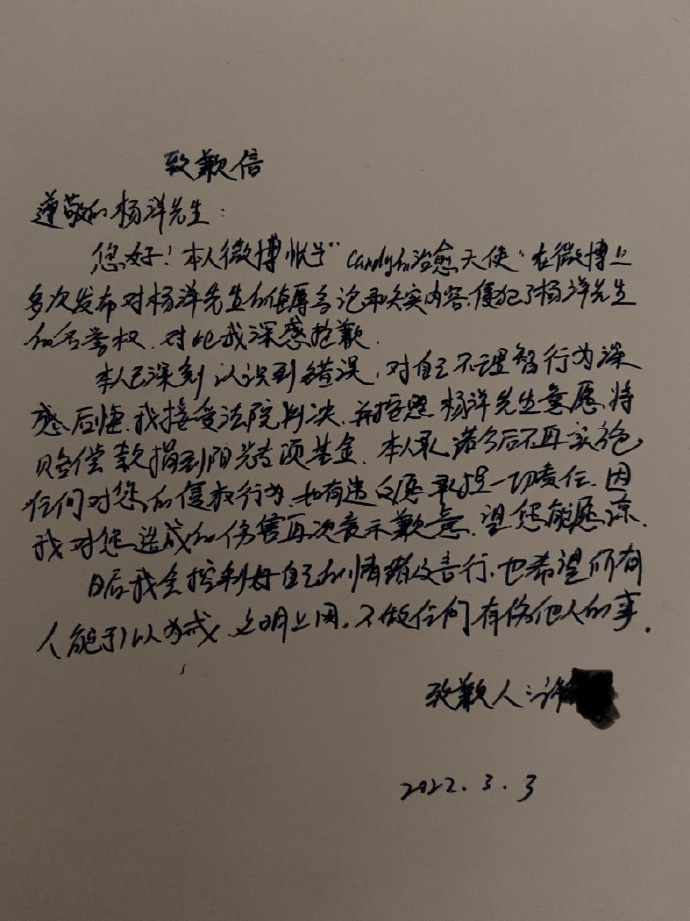 致歉信
尊敬的杨洋先生:
您好!本人微博账号"Candy的治愈天使"在微博上
多次发布对杨洋先生的侮辱言论和失实内容,侵犯了杨洋先生
的名誉权,对此我深感抱歉.
本人已深刻认识到错误,对自己不理智行为深
感后悔,我接受法院判决,并按照杨洋先生意愿,将
赔偿款捐到阳光专项基金.本人承诺今后不再实施
任何对您的侵权行为,如有违反愿承担一切责任.因
我对您造成的伤害再次表示歉意,望您能愿谅.
日后我会控制好自己的情绪及言行,也希望所有
人能引以为戒,文明上网,不做任何有伤他人的事.
致歉人:许
2022.3.3